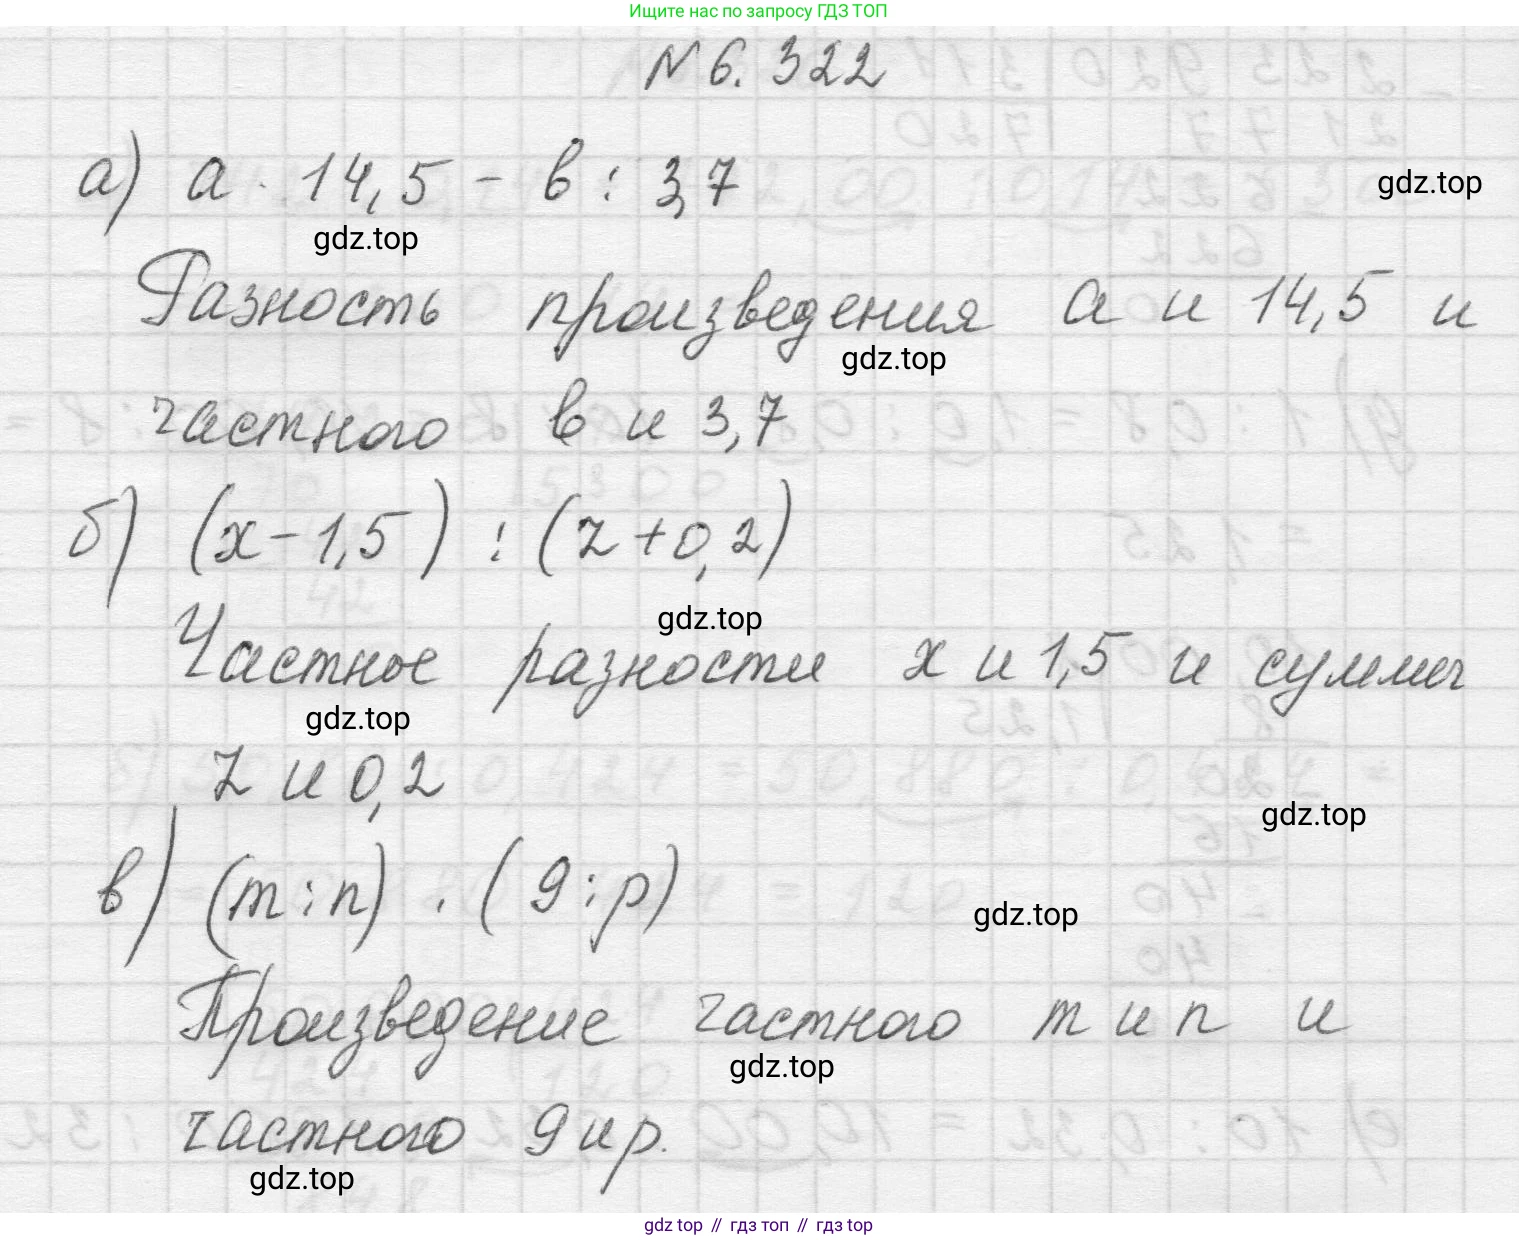 Ищите нас по запросу ГДЗ ТОП
N 6.322
а) a · 14,5 - в : 3,7
gdz.top
gdz.top
Разность произведения a и 14,5 и
gdz.top
частного в и 3,7
б) (x - 1,5) : (z + 0,2)
gdz.top
Частное разности x и 1,5 и суммы
gdz.top
z и 0,2
gdz.top
в) (m : n) · (9 : p)
gdz.top
Произведение частного m и n и
gdz.top
частного 9 и p.
gdz.top
gdz top // гдз топ // гдз top